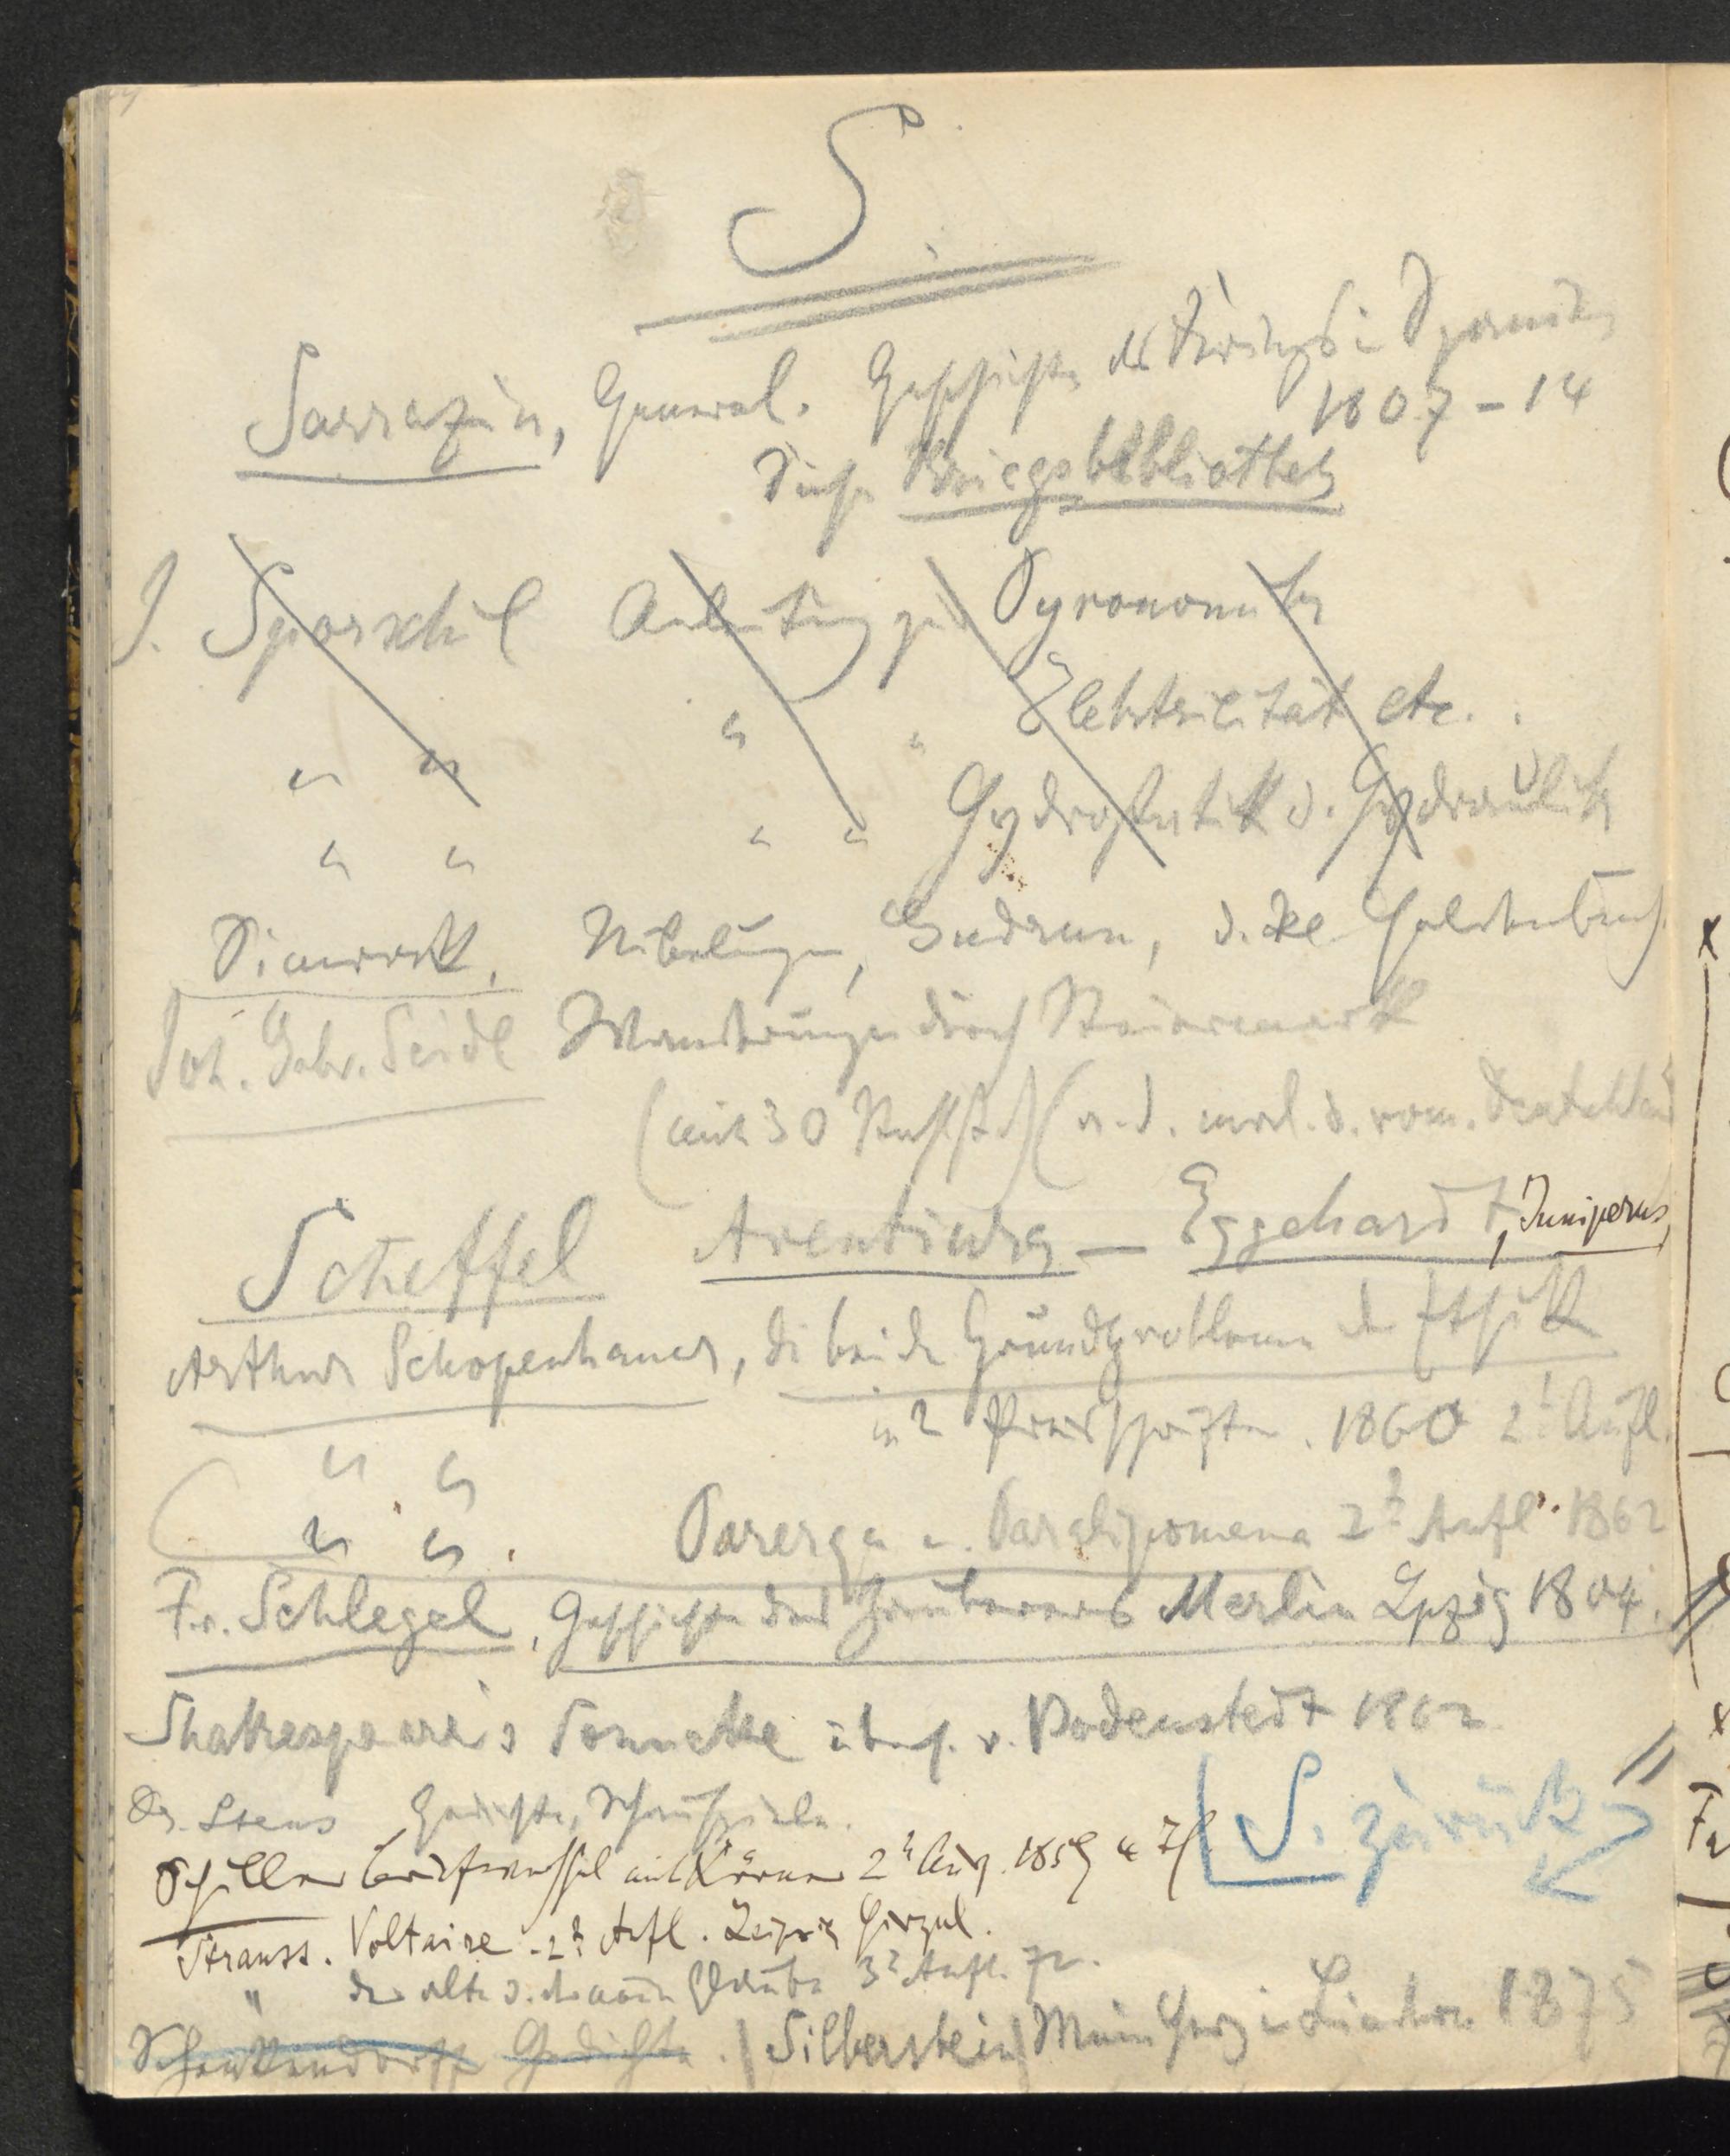 S.
Sarrazin, General. Geschichte des Krieges in Spanien
1807-14
Siehe Kriegsbibliothek
J. Sporschil Anleitung zur Pyronomik
" " " " Elektricität etc.
" " " " Hydrostatik u. Hydraulik
Simrock, Nibelungen, Gudrun, d. kl. Heldenbuch
Joh. Gabr. Seidl Wanderungen durch Steiermark
(mit 30 Stahlst.) (a. d. mal. u. rom. Deutschland
Scheffel Aventiure — Eggehardt, Juniperus,
Arthur Schopenhauer, die beiden Grundprobleme der Ethik
in 2 Preisschriften. 1860 2t. Aufl.
" "
" " . Parerga u. Paralipomena 2t Aufl. 1862
Fr. Schlegel, Geschichte des Zauberers Merlin Lpzig 1804.
Shakespeare's Sonnette übers. v. Bodenstedt 1862
Gedichte, Schauspiele.
Schiller Briefwechsel mit Körner 2t Aufl. 1859
S. zurück
Strauss. Voltaire - 2t Aufl. Leipzig Hirzel.
" der alte u. der neue Glaube 3t Aufl.
Schenkendorff Gedichte. | Silberstein | Mein Herz in Liedern 1875